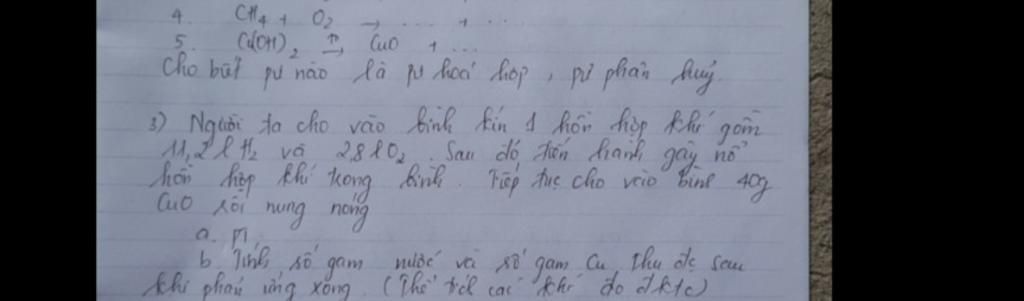 4. CH4 + O2 → ... + ...
5. Cu(OH)2 →t° CuO + ...
Cho biết pư nào là pư hoá hợp, pư phân huỷ.
3) Người ta cho vào bình kín 1 hỗn hợp khí gồm
11,2l H2 và 2,8l O2. Sau đó, tiến hành gây nổ
hỗn hợp khí trong bình. Tiếp tục cho vào bình 40g
CuO rồi nung nóng
a. PT,
b. Tính số gam nước và số gam Cu thu đc sau
khi phản ứng xong. (Thể tích các khí đo đktc)